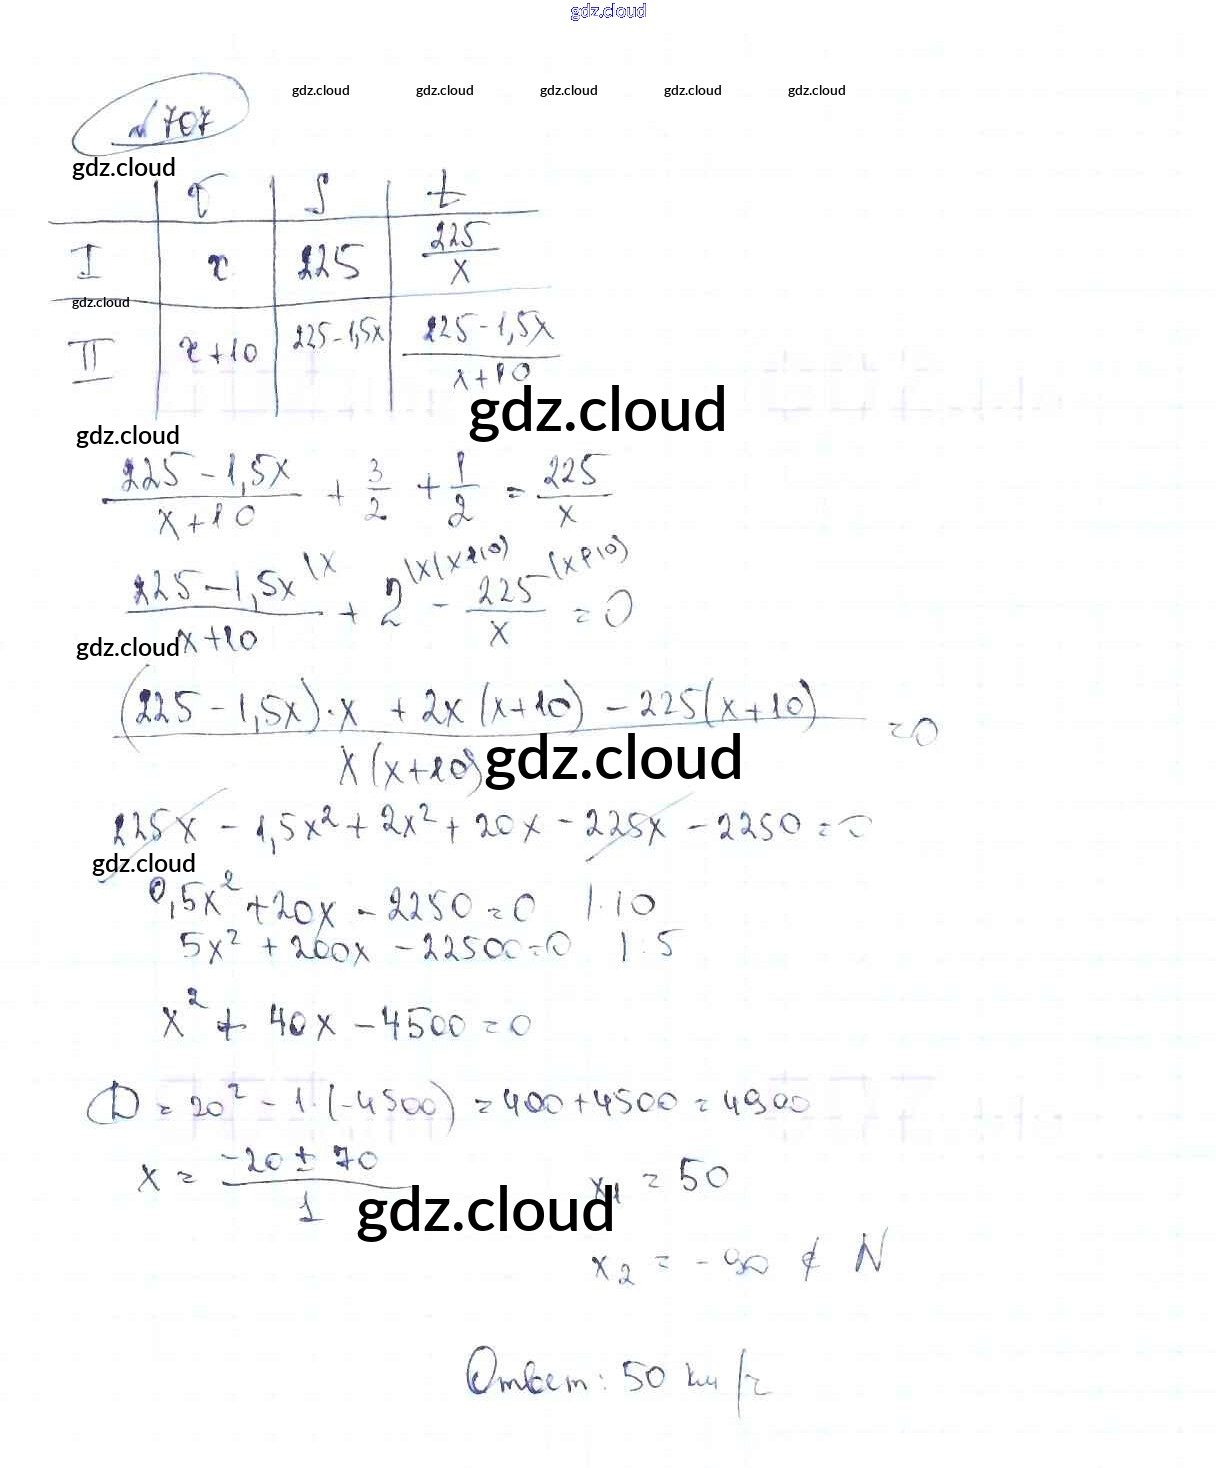 gdz.cloud
gdz.cloud gdz.cloud gdz.cloud gdz.cloud gdz.cloud
№ 707
gdz.cloud
v S t
I x 225 225/x
gdz.cloud
II x+10 225-1,5x (225-1,5x)/(x+10)
gdz.cloud
gdz.cloud
(225-1,5x)/(x+10) + 3/2 + 1/2 = 225/x
(225-1,5x)/(x+10) \x + 2 \x(x+10) - 225/x \(x+10) = 0
gdz.cloud
((225-1,5x)·x + 2x(x+10) - 225(x+10))/(x(x+10)) = 0
gdz.cloud
225x - 1,5x² + 2x² + 20x - 225x - 2250 = 0
gdz.cloud
0,5x² + 20x - 2250 = 0 |·10
5x² + 200x - 22500 = 0 |:5
x² + 40x - 4500 = 0
D = 20² - 1·(-4500) = 400 + 4500 = 4900
x = (-20 ± 70)/1 x₁ = 50
gdz.cloud
x₂ = -90 ∉ N
Ответ: 50 км/ч